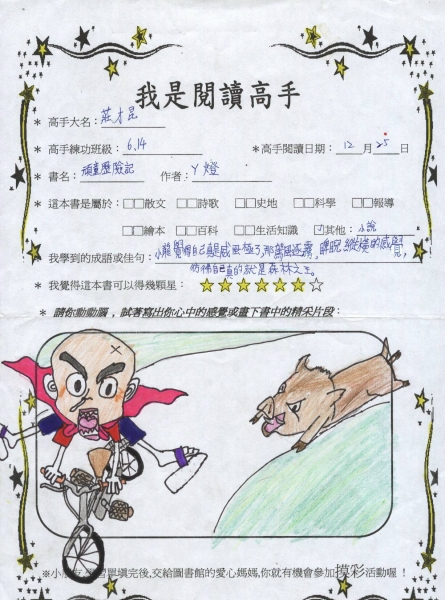 我是閱讀高手
* 高手大名：莊才昆
* 高手練功班級：6.14 *高手閱讀日期：12月25日
* 書名：頑童歷險記 作者：丫燈
* 這本書是屬於：□□散文 □□詩歌 □□史地 □□科學 □□報導
□□繪本 □□百科 □□生活知識 ☑其他：小說
小龍覺得自己威風極了,那萬田逐霧,睥睨縱橫的感覺,
* 我學到的成語或佳句：彷彿自己真的就是森林之王。
* 我覺得這本書可以得幾顆星：★★★★★★☆
* 請你動動腦，試著寫出你心中的感覺或畫下書中的精采片段：
※小朋友 習單填完後,交給圖書館的愛心媽媽,你就有機會參加摸彩活動喔！